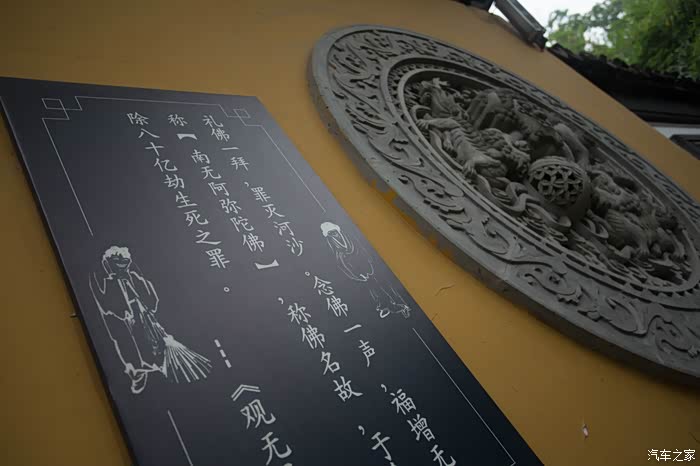 礼佛一拜，罪灭河沙。念佛一声，福增无
称【南无阿弥陀佛】，称佛名故，于
除八十亿劫生死之罪。……《观无
汽车之家